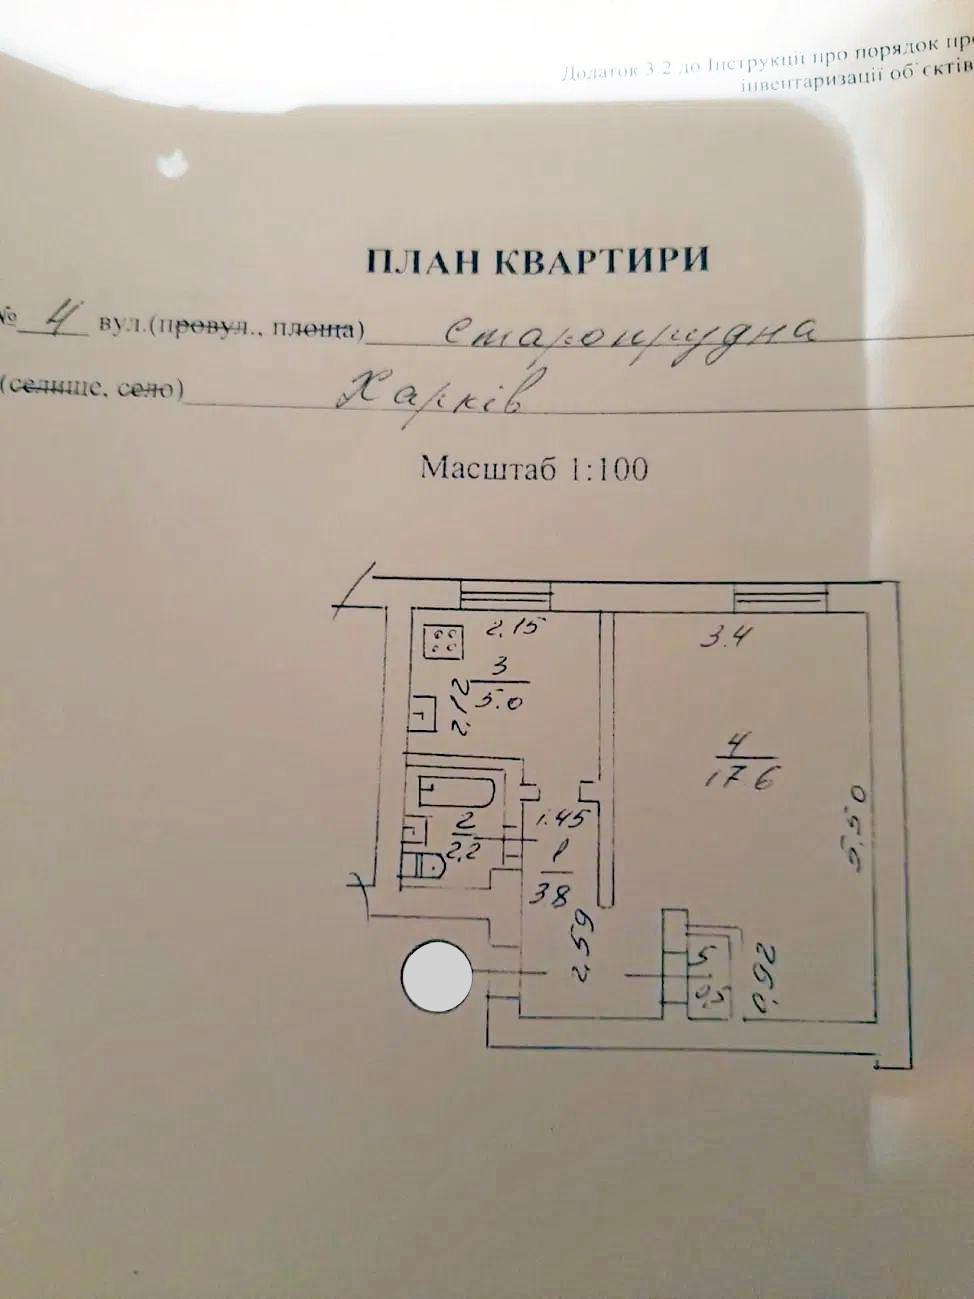 Додаток 3.2 до Інструкції про порядок про
інвентаризації об`єктів
ПЛАН КВАРТИРИ
№ 4 вул.(провул., площа) Старопрудна
(селище, село) Харків
Масштаб 1:100
2.15
3.4
3
5.0
2.12
4
17.6
1.45
2
2.2
1
3.8
5.50
2.59
5
0.5
0.92